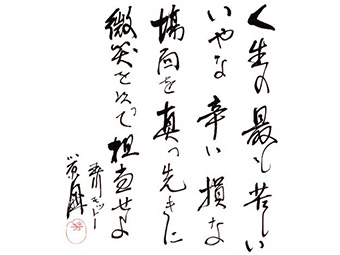 人生の最も苦しい
いやな辛い損な
場面を真っ先きに
微笑を以って担当せよ
モットー